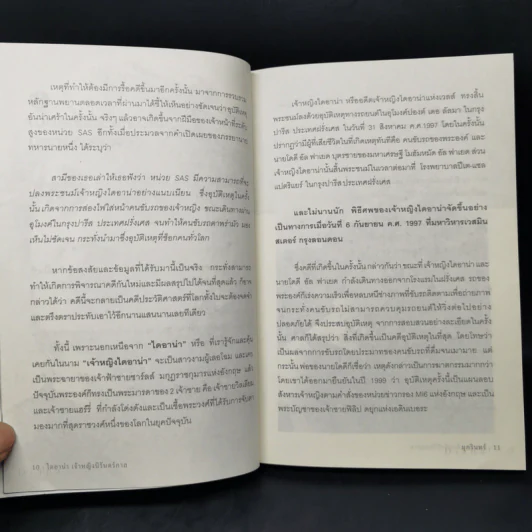 เหตุที่ทำให้ต้องมีการรื้อคดีขึ้นมาอีกครั้งนั้น มาจากการทบทวน
หลักฐานพยานตลอดเวลาที่ผ่านมาได้ชี้ให้เห็นอย่างชัดเจนว่าอุบัติเหตุ
อันน่าเศร้าในครั้งนั้น จริงๆ แล้วอาจเกิดจากฝีมือของเจ้าหน้าที่ระดับ
สูงของหน่วย SAS อีกทั้งเมื่อประมวลจากคำเปิดเผยของภรรยานาย
ทหารนายหนึ่ง ได้ระบุว่า
สามีของเธอเล่าให้เธอฟังว่า หน่วย SAS มีความสามารถที่จะ
ปลงพระชนม์เจ้าหญิงไดอาน่าอย่างแนบเนียน ซึ่งอุบัติเหตุในครั้ง
นั้น เกิดจากการส่องไฟใส่หน้าคนขับรถของเจ้าหญิง ขณะเดินทางผ่าน
อุโมงค์ในกรุงปารีส ประเทศฝรั่งเศส จนทำให้คนขับรถตาพร่ามัว มอง
เห็นไม่ชัดเจน กระทั่งนำมาซึ่งอุบัติเหตุที่ช็อกคนทั่วโลก
หากข้อสงสัยและข้อมูลที่ได้รับมานี้เป็นจริง กระทั่งสามารถ
ทำให้เกิดการพิจารณาคดีกันใหม่และมีผลสรุปไปได้จนที่สุดแล้ว ก็อาจ
กล่าวได้ว่า คดีนี้จะกลายเป็นคดีประวัติศาสตร์ที่โลกทั้งใบจะต้องจดจำ
และตรึงตราประทับเอาไว้อีกนานแสนนานเลยทีเดียว
ทั้งนี้ เพราะนอกเหนือจาก "ไดอาน่า" หรือ ที่เรารู้จักและคุ้น
เคยกันในนาม "เจ้าหญิงไดอาน่า" จะเป็นสาวงามผู้เลอโฉม และเคย
เป็นพระชายาของเจ้าฟ้าชายชาร์ลส์ มกุฎราชกุมารแห่งอังกฤษ แล้ว
ปัจจุบันพระองค์ก็ทรงเป็นพระมารดาของ 2 เจ้าชาย คือ เจ้าชายวิลเลียม
และเจ้าชายแฮร์รี่ ที่กำลังโด่งดังและเป็นเชื้อพระวงศ์ที่ได้รับการจับตา
มองมากที่สุดราชวงศ์หนึ่งของโลกในยุคปัจจุบัน
10 - ไดอาน่า เจ้าหญิงนิรันดร์กาล
เจ้าหญิงไดอาน่า หรืออดีตเจ้าหญิงไดอาน่าแห่งเวลส์ ทรงสิ้น
พระชนม์ลงด้วยอุบัติเหตุทางรถยนต์ในอุโมงค์ปองต์ เดอ ลัลมา ในกรุง
ปารีส ประเทศฝรั่งเศส ในวันที่ 31 สิงหาคม ค.ศ.1997 โดยในครั้งนั้น
ปรากฏว่ามีผู้ที่เสียชีวิตในที่เกิดเหตุทันทีคือ คนขับรถของพระองค์ และ
นายโดดี อัล ฟาเยด บุตรชายของมหาเศรษฐี โมฮัมหมัด อัล ฟาเยด ส่วน
เจ้าหญิงไดอาน่านั้นสิ้นพระชนม์ในเวลาต่อมาที่ โรงพยาบาลปิเต-แซล
แปตริแยร์ ในกรุงปารีส ประเทศฝรั่งเศส
และไม่นานนัก พิธีศพของเจ้าหญิงไดอาน่าจัดขึ้นอย่าง
เป็นทางการเมื่อวันที่ 6 กันยายน ค.ศ. 1997 ที่มหาวิหารเวสมิน
สเตอร์ กรุงลอนดอน
ซึ่งคดีที่เกิดขึ้นในครั้งนั้น กล่าวกันว่า ขณะที่ เจ้าหญิงไดอาน่า และ
นายโดดี อัล ฟาเยด กำลังเดินทางออกจากโรงแรมในฝรั่งเศส รถของ
พระองค์ก็เร่งความเร็วเพื่อหลบหนีช่างภาพที่ขับรถติดตามเพื่อถ่ายภาพ
จนกระทั่งคนขับรถไม่สามารถควบคุมรถยนต์ให้วิ่งต่อไปอย่าง
ปลอดภัยได้ จึงประสบอุบัติเหตุ จากการสอบสวนอย่างละเอียดในครั้ง
นั้น ศาลก็ได้สรุปว่า สิ่งที่เกิดขึ้นเป็นคดีอุบัติเหตุในที่สุด โดยโทษว่า
เป็นผลจากการขับรถโดยประมาทของคนขับรถที่ดื่มจนเมามาย แต่
กระนั้น พ่อของนายโดดีก็เชื่อว่า เหตุดังกล่าวเป็นการฆาตกรรมมากกว่า
โดยเขาได้ออกมายืนยันในปี 1999 ว่า อุบัติเหตุครั้งนี้เป็นแผนลอบ
สังหารเจ้าหญิงตามคำสั่งของหน่วยข่าวกรอง MI6 แห่งอังกฤษ และเป็น
พระบัญชาของเจ้าชายฟิลิป ดยุกแห่งเอดินเบอระ
มุกรินทร์ - 11